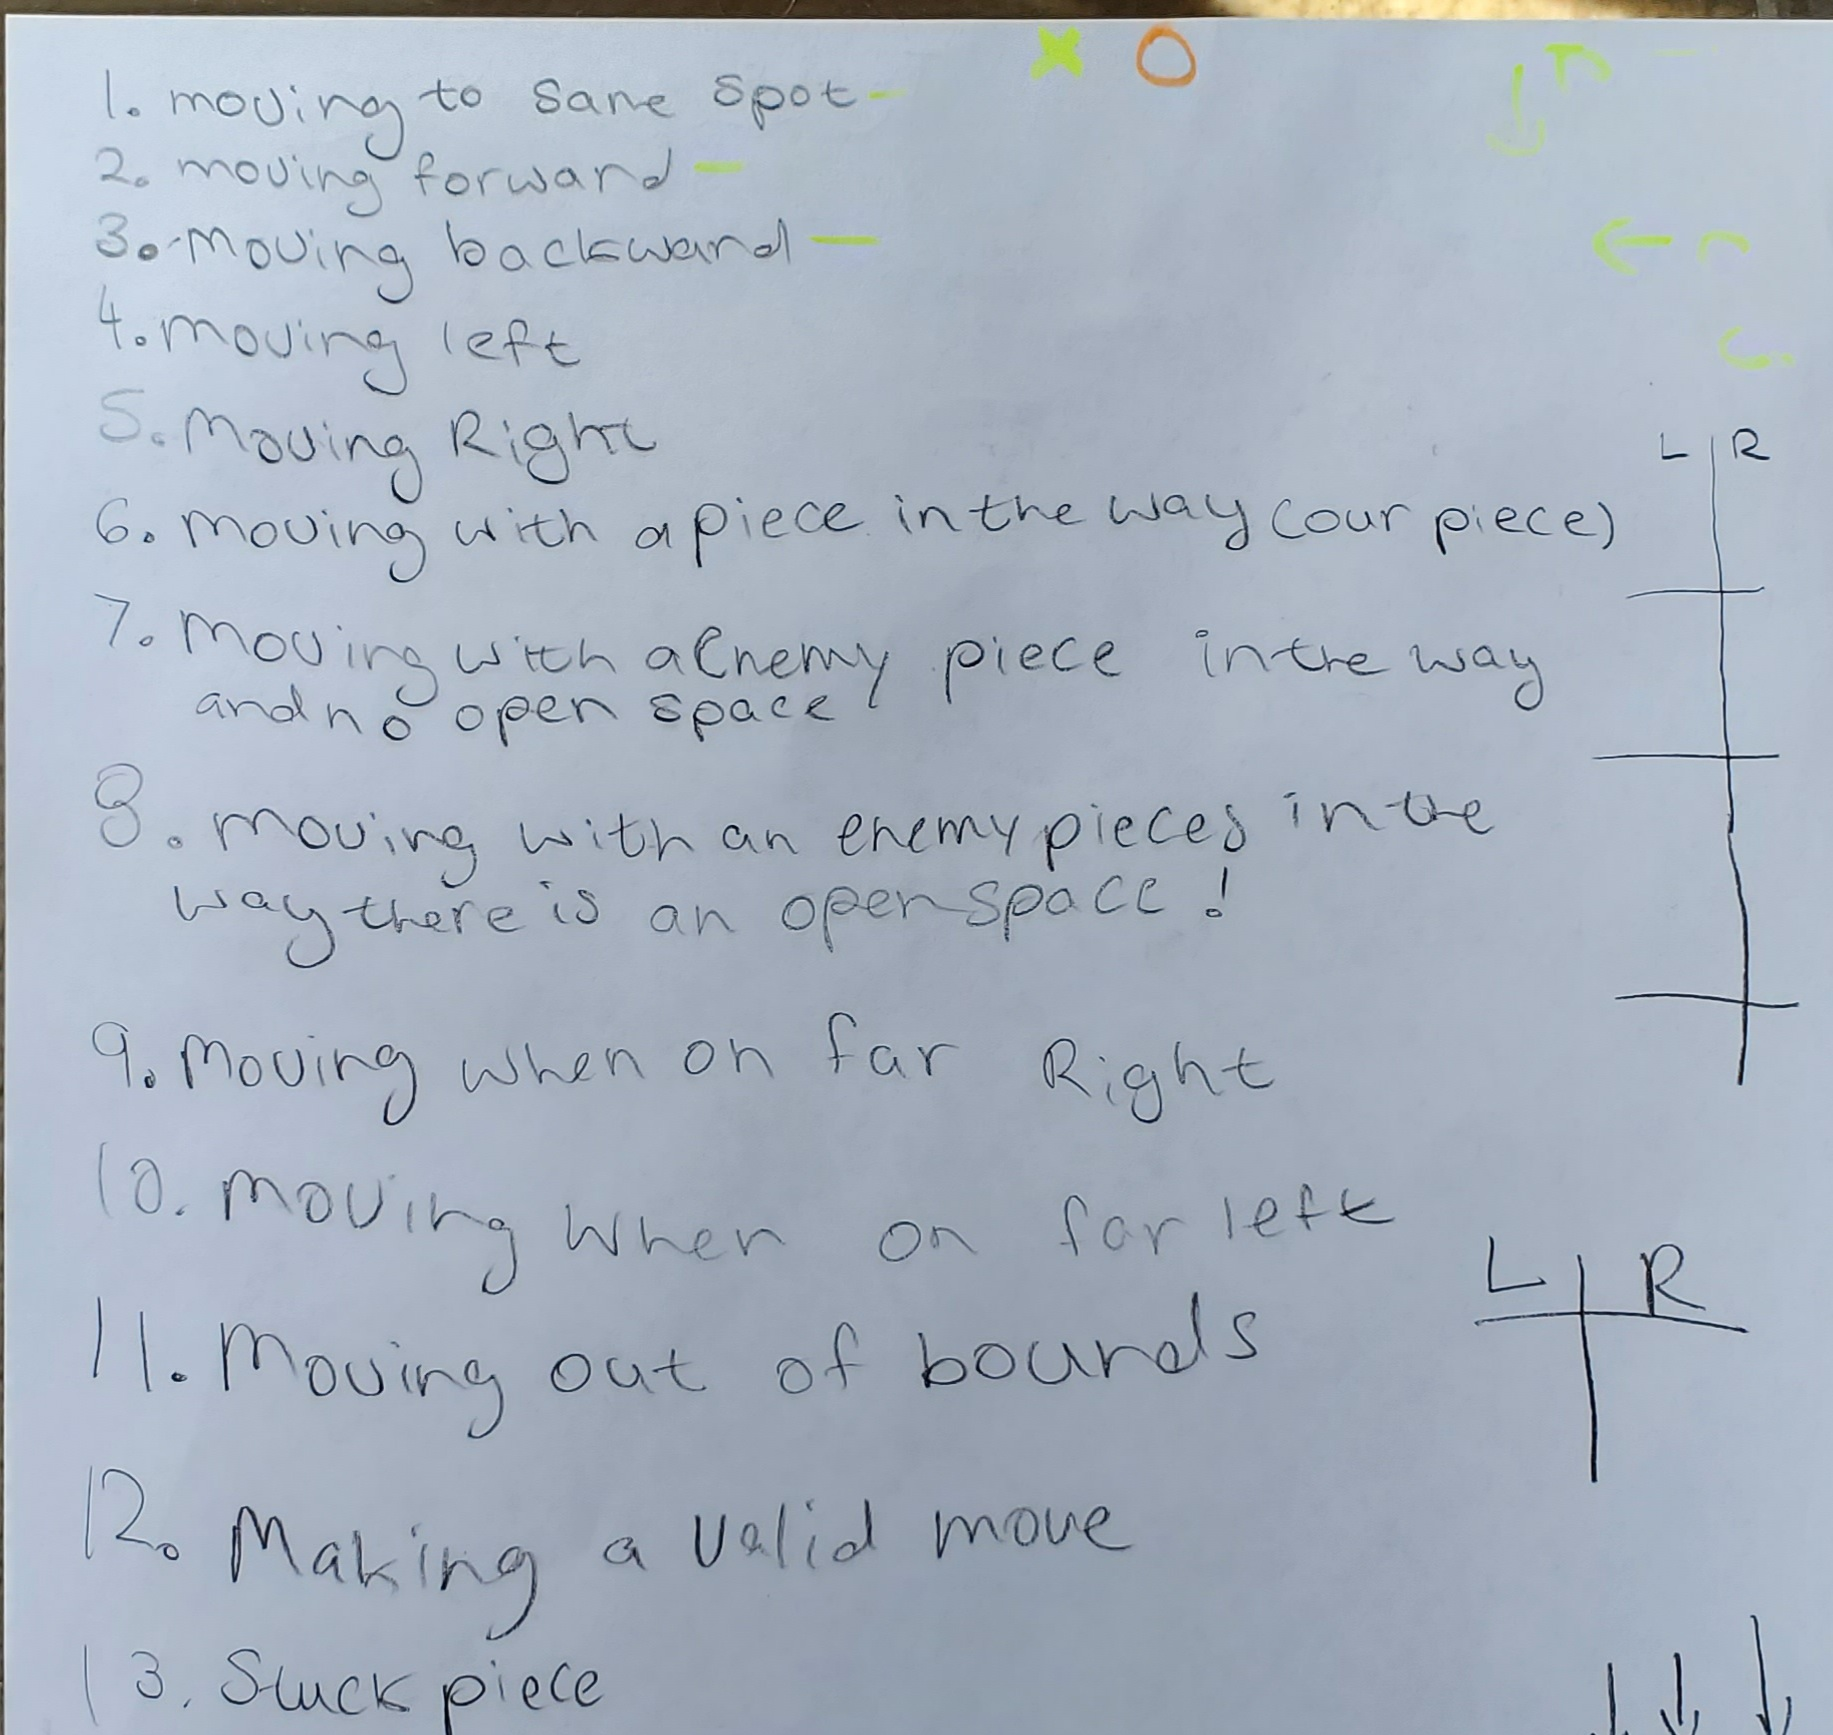 1. moving to same spot -
2. moving forward -
3. Moving backward -
4. moving left
5. Moving Right
6. moving with a piece in the way (our piece)
7. Moving with a Enemy piece in the way
and no open space
8. moving with an enemy pieces in the
way there is an open space!
9. Moving when on far Right
10. moving when on far left
11. Moving out of bounds
12. Making a valid move
13. Stuck piece
X O
L R
L R